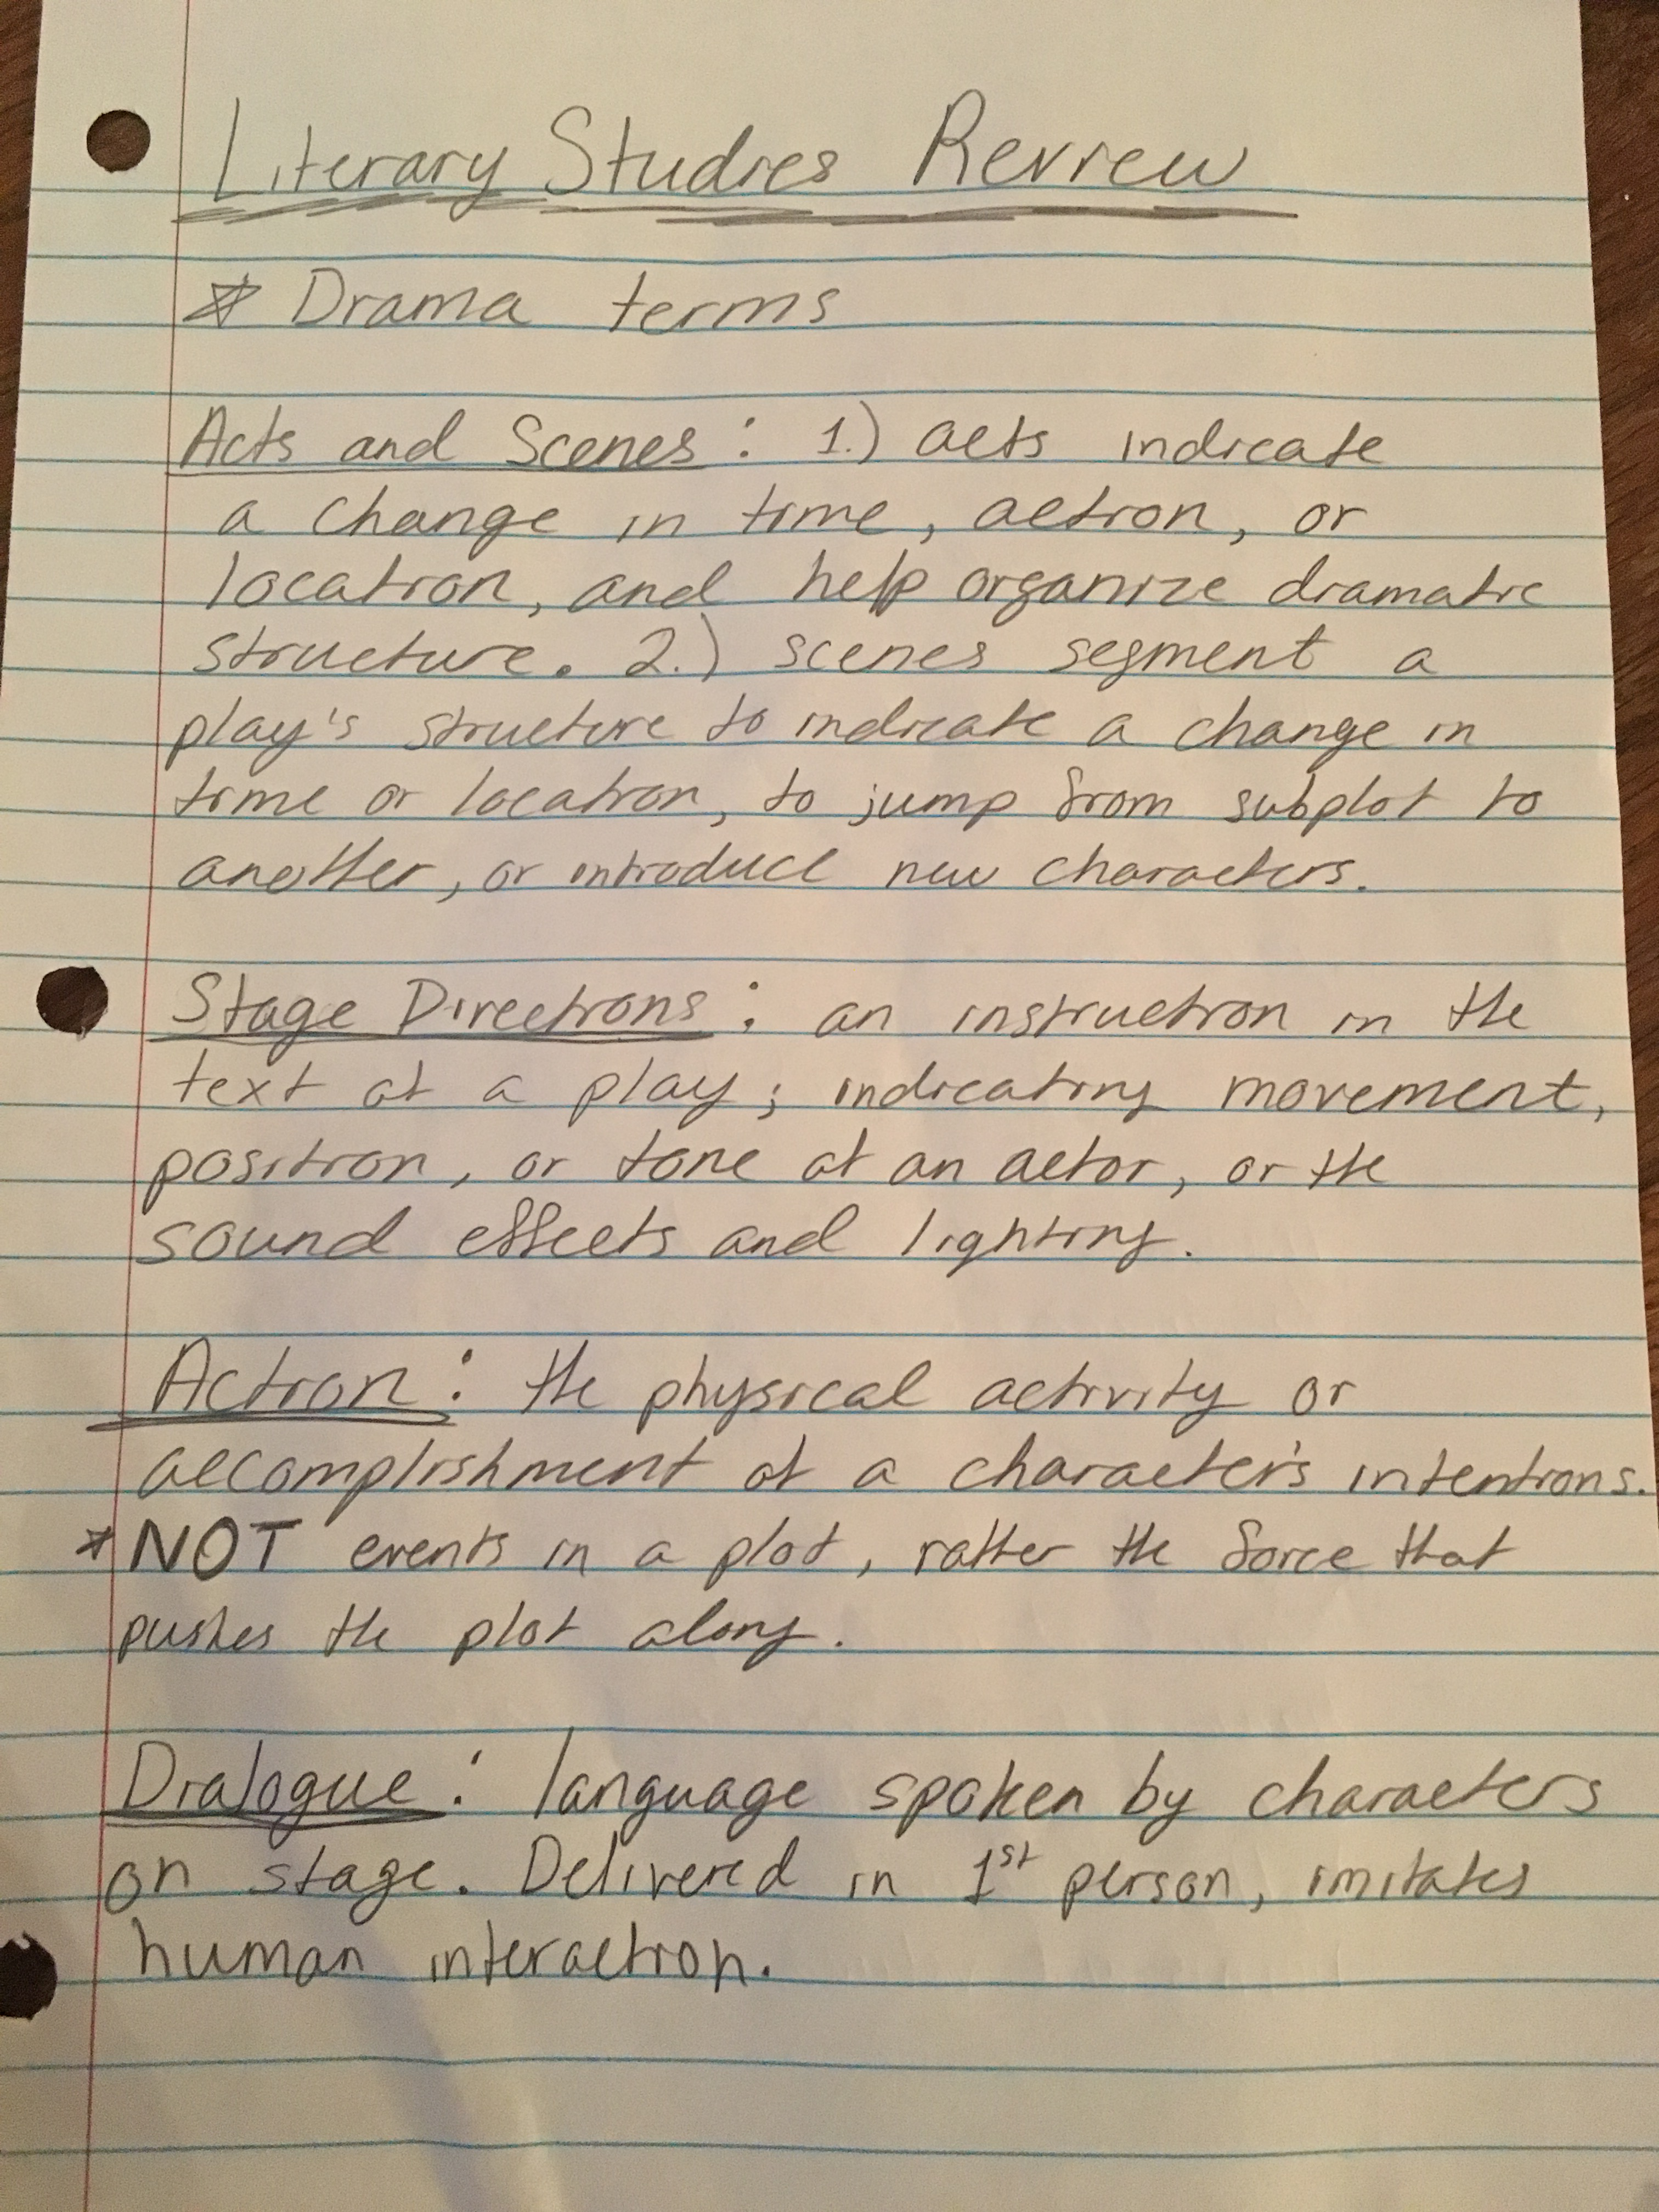 Literary Studies Review
* Drama terms
Acts and Scenes: 1.) acts indicate
a change in time, action, or
location, and help organize dramatic
structure. 2.) scenes segment a
play's structure to indicate a change in
time or location, to jump from subplot to
another, or introduce new characters.
Stage Directions: an instruction in the
text of a play; indicating movement,
position, or tone of an actor, or the
sound effects and lighting.
Action: the physical activity or
accomplishment of a character's intentions.
*NOT events in a plot, rather the force that
pushes the plot along.
Dialogue: language spoken by characters
on stage. Delivered in 1st person, imitates
human interaction.